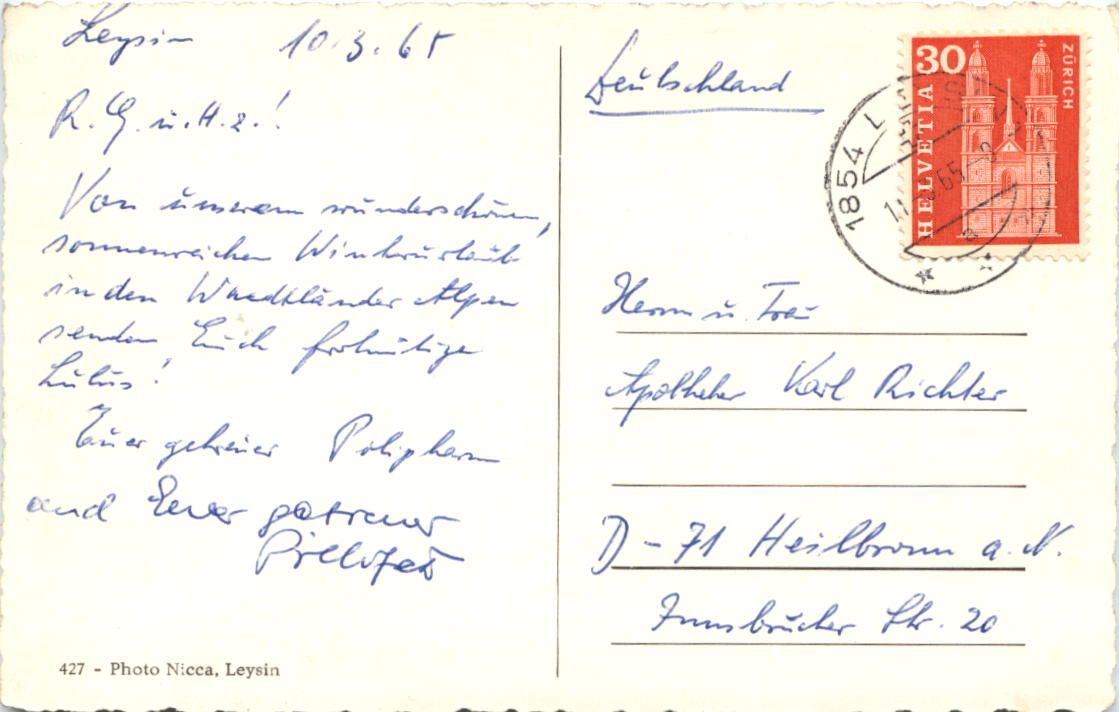 Leysin 10.3.65
R. G. u. H. z.!
Von unserem wunderschönen,
sonnenreichen Winterurlaub
in den Waadtländer Alpen
senden Euch frohmütige
Lulus!
Euer getreuer Polipharm
und Euer getreuer
427 - Photo Nicca, Leysin
Deutschland
30
ZÜRICH
HELVETIA
1854 L
65
a
Herrn u. Frau
Apotheker Karl Richter
D-71 Heilbronn a. N.
Innsbrucker Str. 20